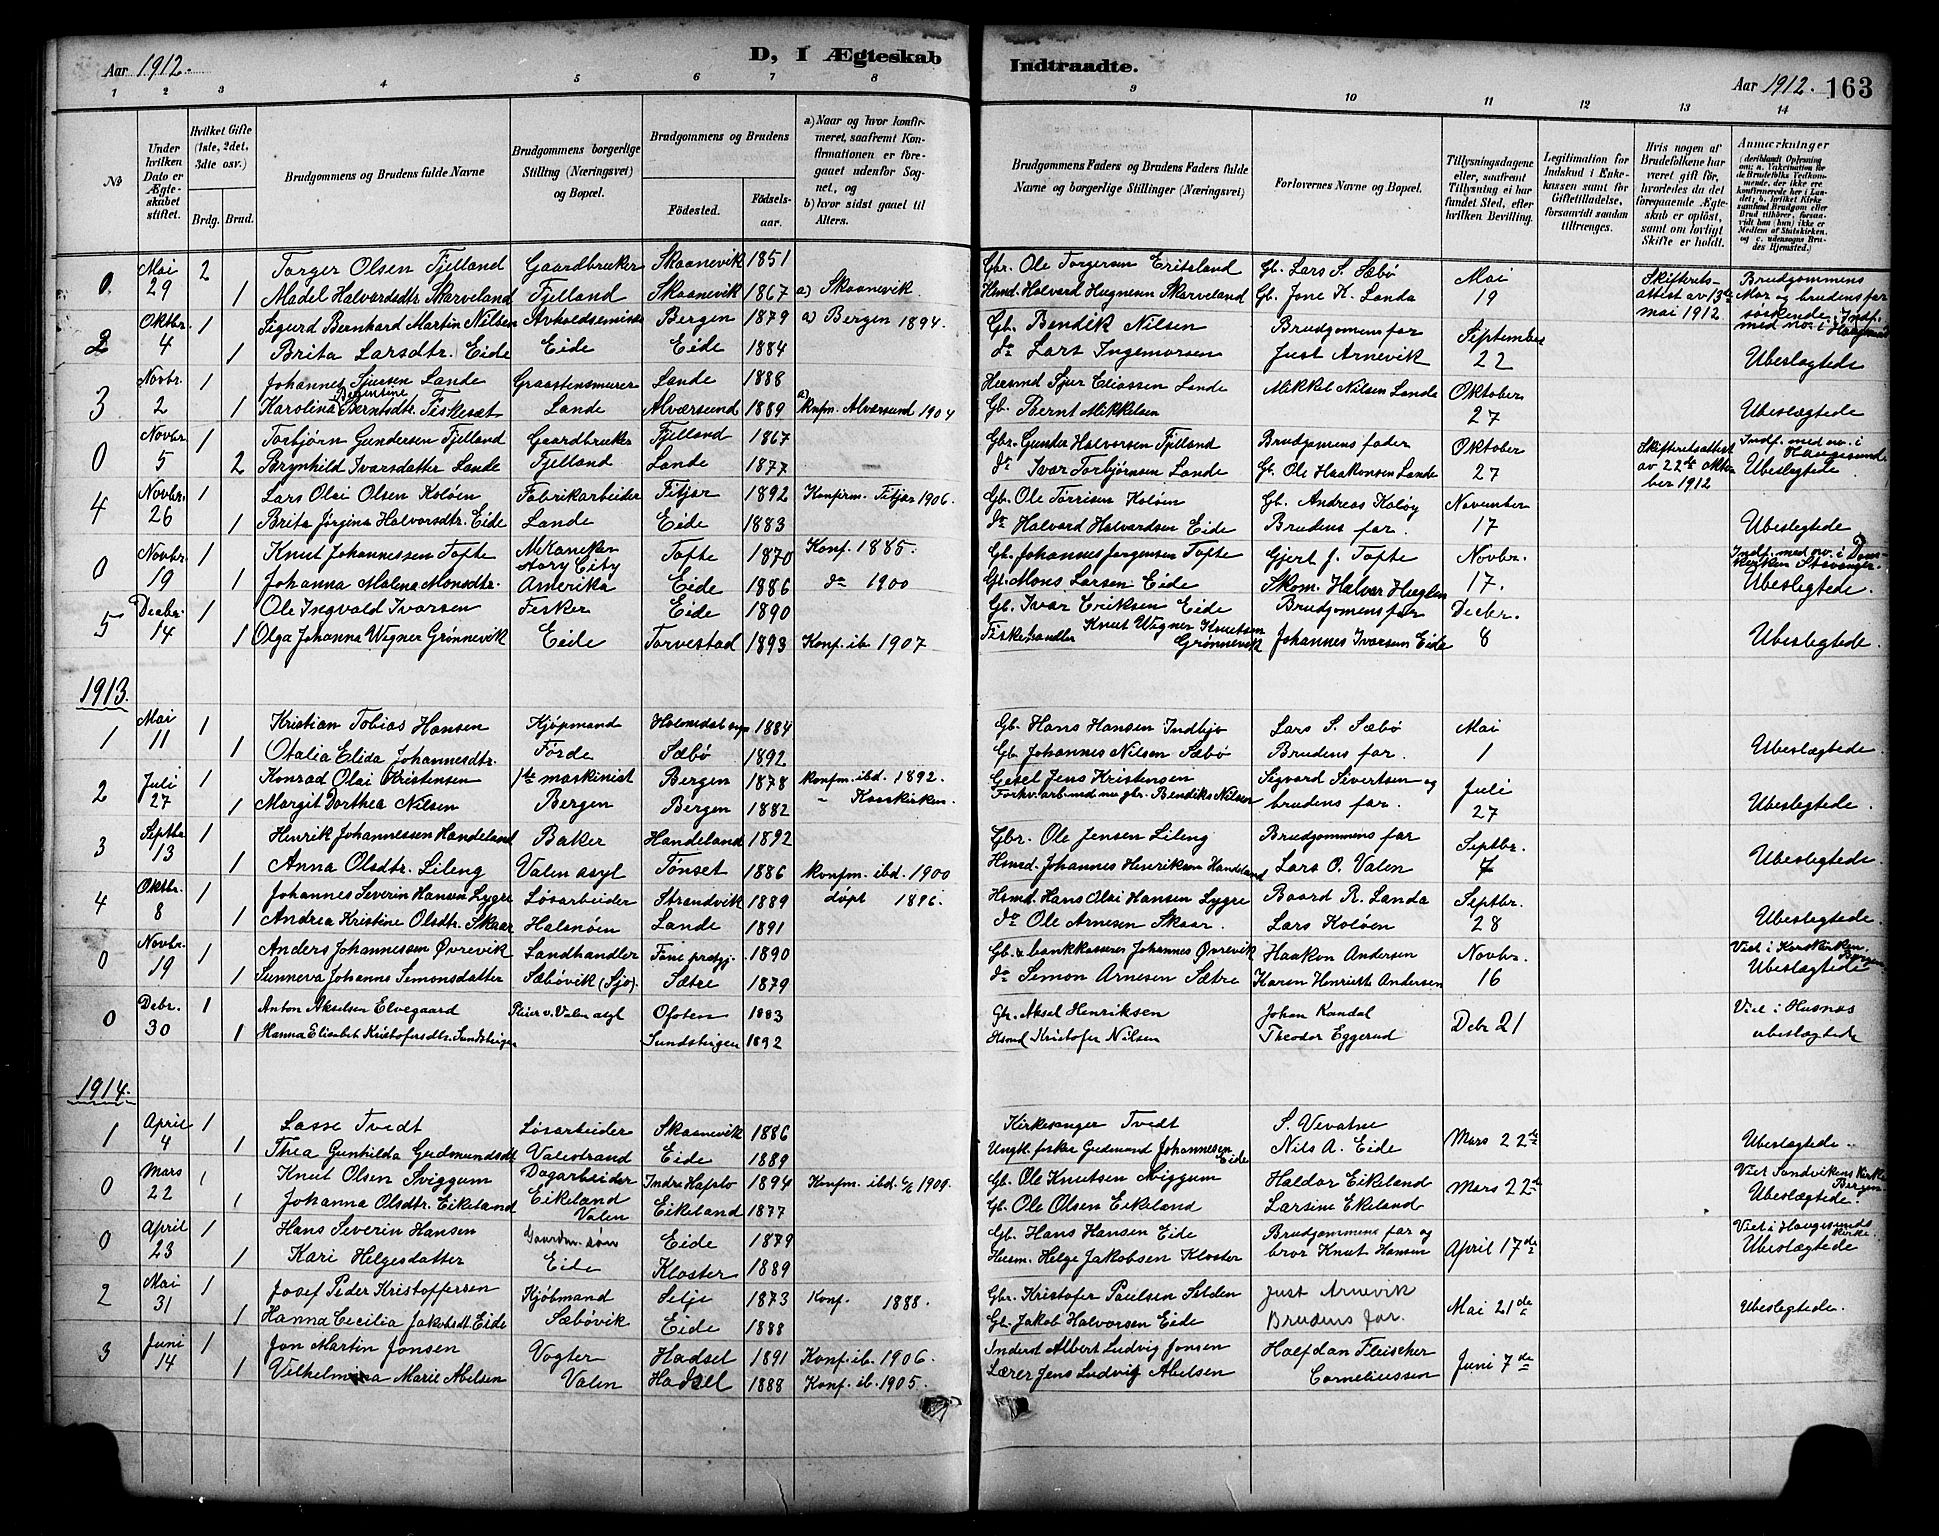 Aar 1912.
D, I Ægteskab Indtraadte.
Aar 1912. 163
1 2 3 4 5 6 7 8 9 10 11 12 13 14
№
Under hvilken Dato er Ægteskabet stiftet.
Hvilket Gifte (1ste, 2det, 3die osv.)
Brdg. Brud.
Brudgommens og Brudens fulde Navne
Brudgommens borgerlige Stilling (Næringsvei) og Bopæl.
Brudgommens og Brudens
Fødested.
Fødselsaar.
a) Naar og hvor konfirmeret, saafremt Konfirmationen er foregaaet udenfor Sognet, og
b) hvor sidst gaaet til Alters.
Brudgommens Faders og Brudens Faders fulde Navne og borgerlige Stillinger (Næringsvei)
Forlovernes Navne og Bopæl.
Tillysningsdagene eller, saafremt Tillysning ei har fundet Sted, efter hvilken Bevilling.
Legitimation for Indskud i Enkekassen samt for Giftetilladelse, forsaavidt saadan tiltrænges.
Hvis nogen af Brudefolkene har været gift før, hvorledes da det foregaaende Ægteskab er opløst, samt om lovligt Skifte er holdt.
Anmærkninger
(deriblandt Opførsning om: a. Vakcination for de Brudefolks Vedkommende, der ikke ere konfirmerede her i Landet; b. hvilket Kirkesamfund Brudgom eller Brud tilhører, forsaavidt han (hun) ikke er Medlem af Statskirken, og c. udensogns Brudes Hjemsted.)
0 Mai 29 2 Torger Olsen Fjelland Gaardbruker Skaanevik 1851 Gbr. Ole Torgersen Eritsland Gb. Lars S. Sæbø Mai 19 Skifterets-attest av 13de mai 1912 Brudgommens Mor og brudens far søskende. Indf. med no. i Haugesund
1 Madel Halvardsdtr. Skarveland Fjelland Skaanevik 1867 a) Skaanevik Hsmd. Halvard Hegnesen Skarveland Gb. Jone K. Landa
2 Oktbr. 4 1 Sigurd Bernhard Martin Nilsen Avholdsemiss. Bergen 1879 a) Bergen 1894. Gb. Bendik Nilsen Brudgomens far September 22
1 Brita Larsdtr. Eide Eide Eide 1884 do Lars Ingemorsen Just Arnevik Ubeslægtede
3 Novbr. 2 1 Johannes Sjursen Lande Graastensmurer Lande 1888 Husmd Sjur Eliassen Lande Mikkel Nilsen Lande Oktober 27
1 Karolina Bergentine Berntsdtr. Fiskeset Lande Alværsund 1889 a) Knfm. Alværsund 1904 Gb. Bernt Mikkelsen Ubeslægtede
0 Novbr. 5 1 Torbjørn Gundersen Fjelland Gaardbruker Fjelland 1867 Gbr. Gunder Halvorsen Fjelland Brudgomens fader Oktober 27 Skifteretsattest av 22de oktober 1912 Indf. med nv. i Haugesund
2 Brynhild Ivarsdatter Lande Fjelland Lande 1877 do Ivar Torbjørnsen Lande Gb. Ole Haakonsen Lande Ubeslegtede
4 Novbr. 26 1 Lars Olai Olsen Koløen Fabrikarbeider Fitjar 1892 Konfirm. Fitjar 1906. Gb. Ole Tørrisen Koløen Gb. Andreas Koløy November 17
1 Brita Jørgina Halvorsdtr. Eide Lande Eide 1883 do Halvard Halvardsen Eide Brudens far. Ubeslegtede
0 Novbr. 19 1 Knut Johannessen Tofte Mekaniker Story City Tofte 1870 Konf. 1885. Gb. Johannes Jorgensen Tofte Gjert J. Tofte Novbr. 17. Indf. med nv. i Domkirken Stavanger.
1 Johanna Malena Monsdtr. Amerika Eide 1886 do 1900 Gb. Mons Larsen Eide Skom. Halvar Heglen Ubeslegtede.
5 Decbr. 14 1 Ole Ingvald Ivarsen Fisker Eide 1890 Gb. Ivar Eriksen Eide Brudgomens far Decbr. 8
1 Olga Johanna Wigner Grønnevik Eide Torvestad 1893 Konf. ib. 1907 Fiskehandler Knut Wigner Knutsen Grønnevik Johannes Ivarsen Eide Ubeslegtede.
1913.
1 Mai 11 1 Kristian Tobias Hansen Kjøpmand 1884 Gb. Hans Hansen Indbjo Lars S. Sæbø Mai 1
1 Otalia Elida Johannesdtr. Førde Sæbø 1892 Gb. Johannes Nilsen Sæbø Brudens far. Ubeslægtede.
2 Juli 27 1 Konrad Olai Kristensen 1te maskinist Bergen 1878 Konfm. ibd. 1892. Gesel Jens Kristensen Sigvard Sivertsen og Juli 27
1 Margit Dorthea Nilsen Bergen Bergen 1882 " Korskirken. Forhv. arb. md nu gbr. Bendiks Nilsen brudens far. Ubeslægtede.
3 Septbr. 13 1 Henrik Johannessen Handeland Baker Handeland 1892 Gbr. Ole Jensen Lileng Brudgommens far Septbr. 7
1 Anna Olsdtr. Lileng Valen asyl Tønset 1886 Konfm. ibd. 1900 Hsmd. Johannes Henriksen Handeland Lars O. Valen Ubeslegtede.
4 Oktbr. 8 1 Johannes Severin Hansen Lygre Løsarbeider Strandvik 1889 døpt 1896. Hsmd. Hans Olai Hansen Lygre Baard R. Landa Septbr. 28
1 Andrea Kristine Olsdtr. Skaar Halsnøen Lande 1891 do Ole Arnesen Skaar. Lars Koløen Ubeslegtede.
0 Novbr. 19 1 Anders Johannessen Øvrevik Landhandler Fine prstgj. 1890 Gb. & bankkasserer Johannes Øvrevik Haakon Andersen Novbr. 16 Viet i Korskirken. Bergen
1 Sunneva Johanne Simonsdatter Sæbøvik (Sjo). Sætre 1879 do Simon Arnesen Sætre Karen Henriette Andersen Ubeslægtede
0 Debr. 30 1 Anton Akselsen Elvegaard Pleier v. Valen asyl Ofoten 1883 Gbr. Aksel Henriksen Johan Kandal Debr 21 Viet i Husnes
1 Hanna Elisabet Kristofersdtr. Sundsteigen Sundsteigen 1892 Hsmd Kristofer Nilsen Theodor Eggerud ubeslægtede
1914.
1 April 4 1 Lasse Tvedt Løsarbeider Skaanevik 1886 Kirkesanger Tvedt S. Vevatne Mars 22de
1 Thea Gunhilda Gudmundsdt Valestrand Eide 1889 Ungk. fisker Gudmund Johannesen Eide Nils A. Eide Ubeslægtede.
0 Mars 22 1 Knut Olsen Sviggum Dagarbeider Indre Hafslo 1894 Konfm. ibd. 1909. Gb. Ole Knutsen Sviggum Haldor Eikeland Mars 22de Viet Sandvikens Kirke Bergen.
1 Johanna Olsdtr. Eikeland Eikeland Valen Eikeland 1877 Gb. Ole Olsen Eikeland Larsine Ekeland Ubeslægtede.
0 April 23 1 Hans Severin Hansen Gaardm. søn Eide 1879 Gb. Hans Hansen Eide Brudgommens far og April 17de Viet i Haugesunds Kirke.
1 Kari Helgesdatter Eide Kloster 1889 Husm. Helge Jakobsen Kloster bror Knut Hansen Ubeslægtede
2 Mai 31 1 Josef Peder Kristoffersen Kjøbmand Selje 1873 Konf. 1888. Gbr. Kristofer Paulsen Selden Just Arnevik Mai 21de
1 Hanna Cecilia Jakobsdt. Eide Sæbøvik Eide 1888 Gb. Jakob Halvorsen Eide Brudens far. Ubeslegtede.
3 Juni 14 1 Jon Martin Jonsen Vogter Hadsel 1891 Konf. ib. 1906. Inderst Albert Ludvig Jonsen Halfdan Fleischer Juni 7de
1 Vilhelmina Marie Abelsen Valen Hadsel 1888 Konf. ib. 1905. Lærer Jens Ludvig Abelsen Corneliussen